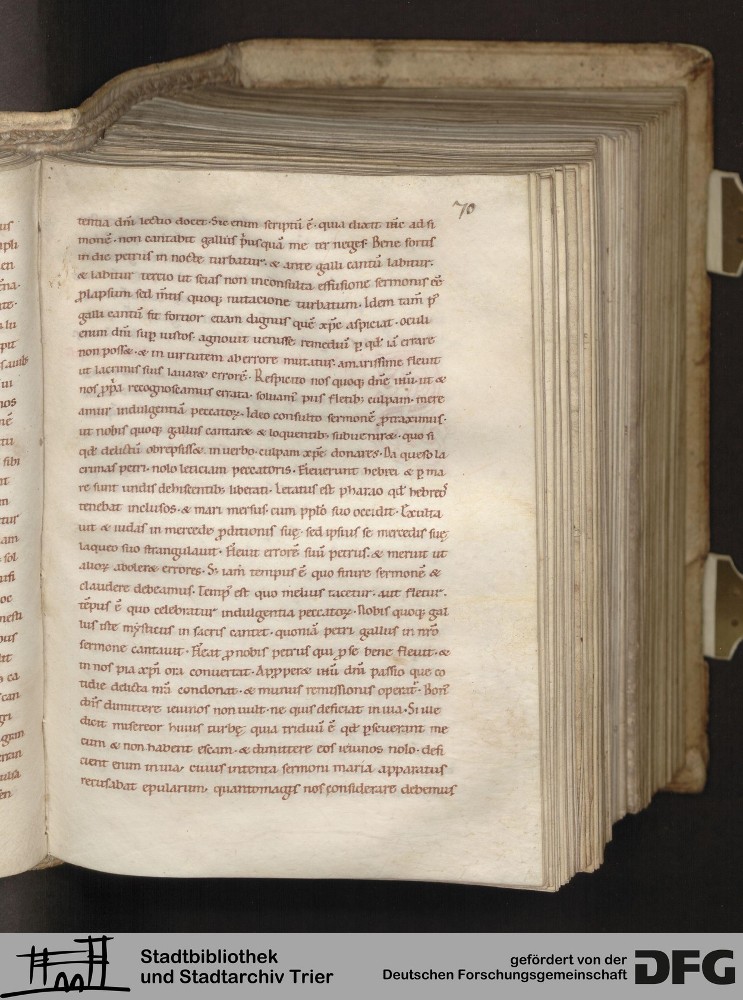 70
tentia dnī lectio docet. Sic enim scriptū ē. quia dixit ihc̄ ad si
monē. non cantabit gallus p̄usquā me ter neges. Bene fortis
in die petrus in nocte turbatur. & ante galli cantū labitur.
& labitur tercio ut scias non inconsulta effusione sermonis eē
ꝓlapsum sed m̄tis quoq; nutacione turbatum. Idem tam̄ p̱
galli cantū fit fortior etiam dignus quē xp̄c aspiciat. oculi
enim dnī sup iustos. agnouit uenisse remediū p qd̄ iā errare
non poss&. & in uirtutem ab errore mutatus. amarissime fleuit
ut lacrimis suis lauar& errorē. Respicito nos quoq; dn̄e ih̄u ut &
nos ꝓpͥa recognoscamus errata. soluam̄ piis fletib; culpam. mere
amur indulgentiā peccatoꝝ. Ideo consulto sermonē ꝓtraximus.
ut nobis quoq; gallus cantar& & loquentib; subuenir&. quo si
qd̄ delictū obrepsiss& in uerbo. culpam xp̄e donares. Da queso la
crimas petri. nolo leticiam peccatoris. Fleuerunt hebrei & p ma
re sunt undis dehiscentib; liberati. Letatus est pharao qd̄ hebreos
tenebat inclusos. & mari mersus cum pplō suo occidit. Exulta
uit & iudas in mercede ꝓditionis suę. sed ipsius se mercedis suę
laqueo suo strangulauit. Fleuit errorē suū petrus. & meruit ut
alioꝝ aboler& errores. S; iam tempus ē quo finire sermonē &
claudere debeamus. Temp̄ est quo melius tacetur. aut fletur.
tēpus ē quo celebratur indulgentia peccatoꝝ. Nobis quoq; gal
lus iste mysticus in sacris cantet. quoniā petri gallus in nrō
sermone cantauit. Fleat ꝓ nobis petrus qui ꝓ se bene fleuit. &
in nos pia xp̄i ora conuertat. Apppet& ih̄u dnī passio que co
tidie delicta nrā condonat. & munus remissionis operat̄. Bon̄
dn̄s dimittere ieiunos non uult. ne quis deficiat in uia. Si ille
dicit misereor huius turbę. quia triduū ē qd̄ pseuerant me
cum & non habent escam. & dimittere eos ieiunos nolo. defi
cient enim in uia. cuius intenta sermoni maria apparatus
recusabat epularum. quantomagis nos considerare debemus
Stadtbibliothek
und Stadtarchiv Trier
gefördert von der
Deutschen Forschungsgemeinschaft
DFG